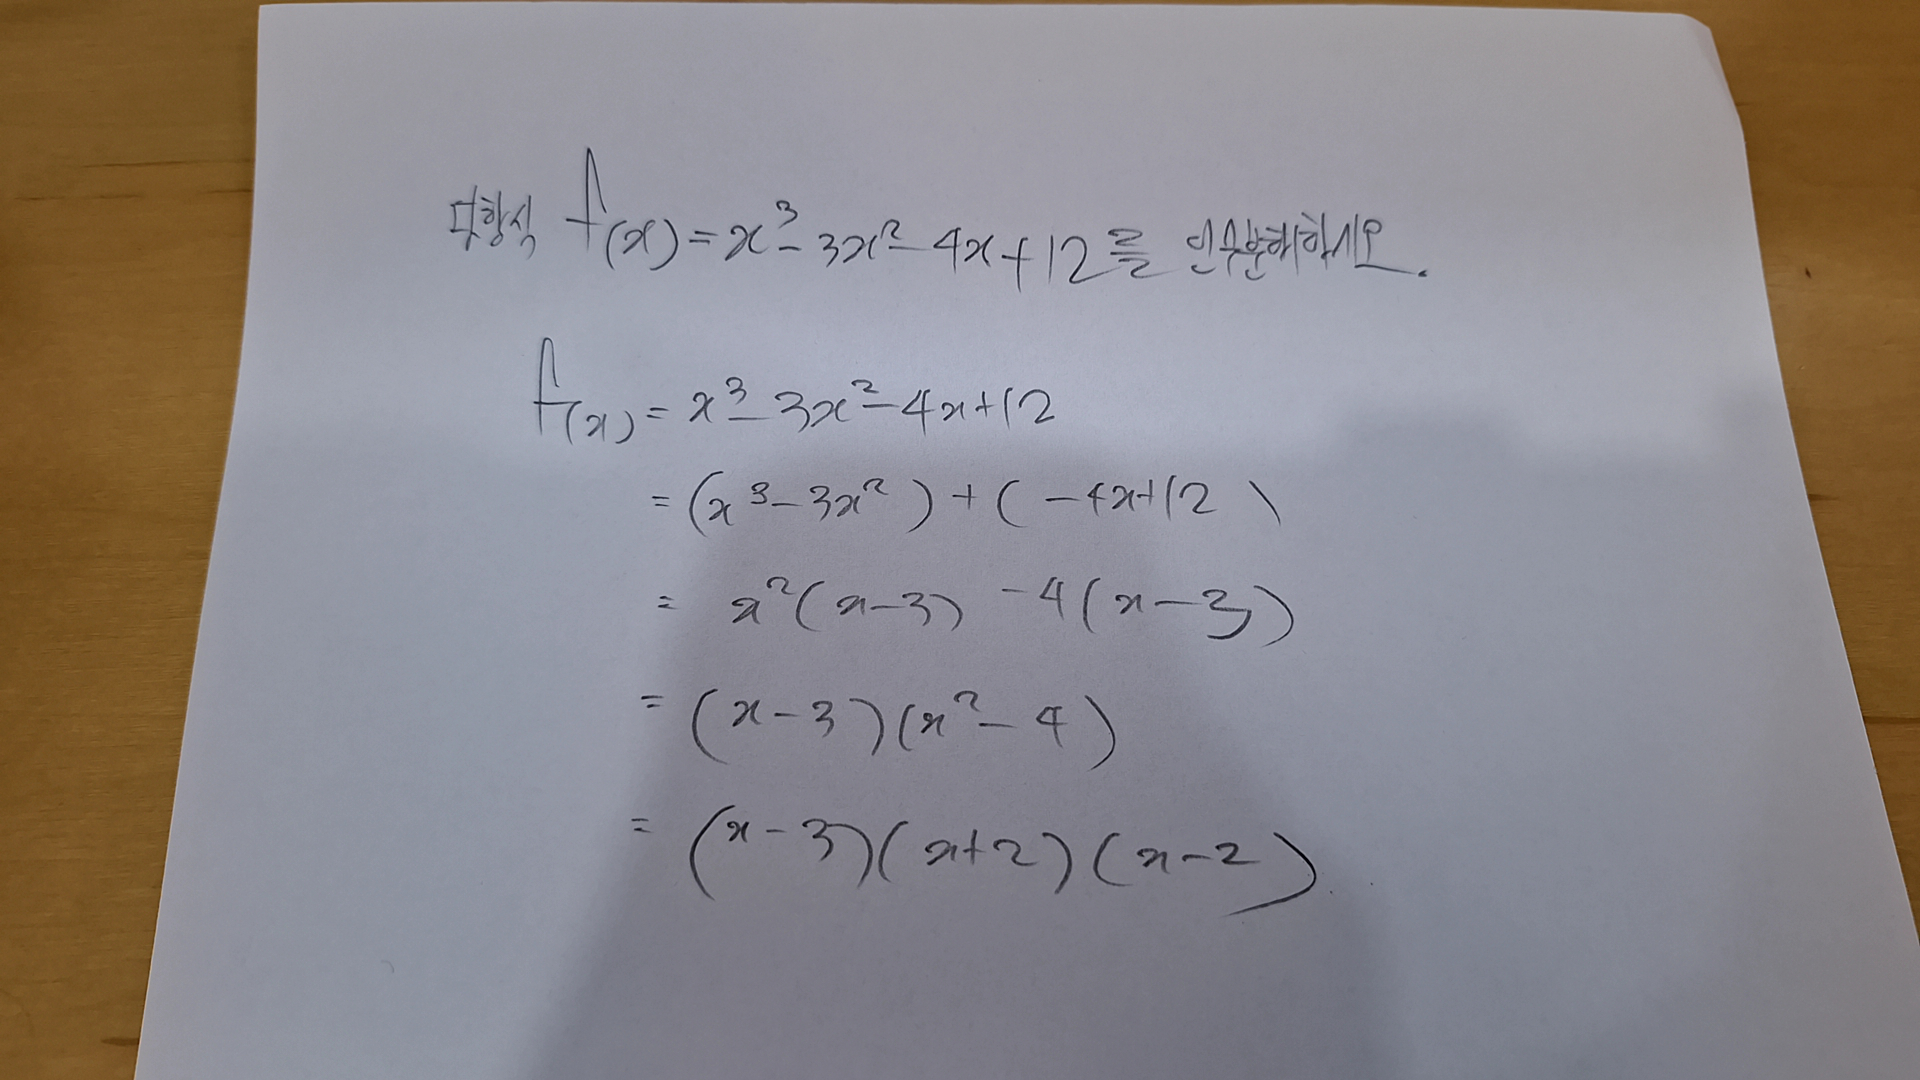 다항식 f(x) = x³ - 3x² - 4x + 12를 인수분해하시오.
f(x) = x³ - 3x² - 4x + 12
= (x³ - 3x²) + (-4x + 12)
= x²(x-3) -4(x-3)
= (x-3)(x²-4)
= (x-3)(x+2)(x-2)